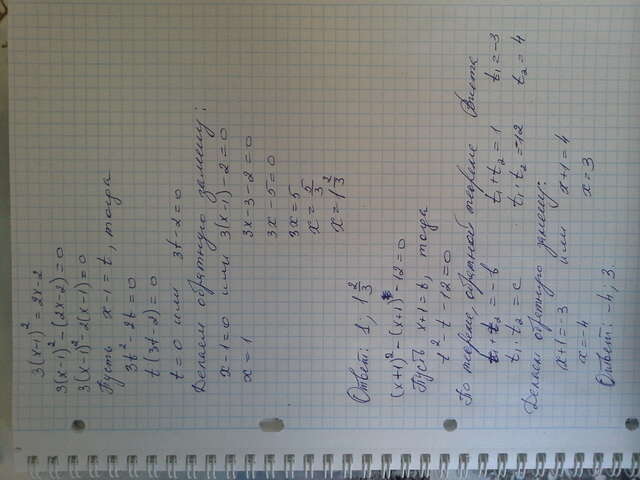 3(x-1)² = 2x-2
3(x-1)² - (2x-2) = 0
3(x-1)² - 2(x-1) = 0
Пусть x-1 = t, тогда
3t² - 2t = 0
t(3t-2) = 0
t = 0 или 3t-2 = 0
Делаем обратную замену:
x-1 = 0 или 3(x-1)-2 = 0
x = 1 3x-3-2 = 0
3x-5 = 0
3x = 5
x = 5/3
x = 1 2/3
Ответ: 1; 1 2/3
(x+1)² - (x+1) - 12 = 0
Пусть x+1 = t, тогда
t² - t - 12 = 0
По теореме, обратной теореме Виета
t₁+t₂ = -b t₁+t₂ = 1 t₁ = -3
t₁·t₂ = c t₁·t₂ = -12 t₂ = 4
Делаем обратную замену:
x+1 = -3 или x+1 = 4
x = -4 x = 3
Ответ: -4; 3.